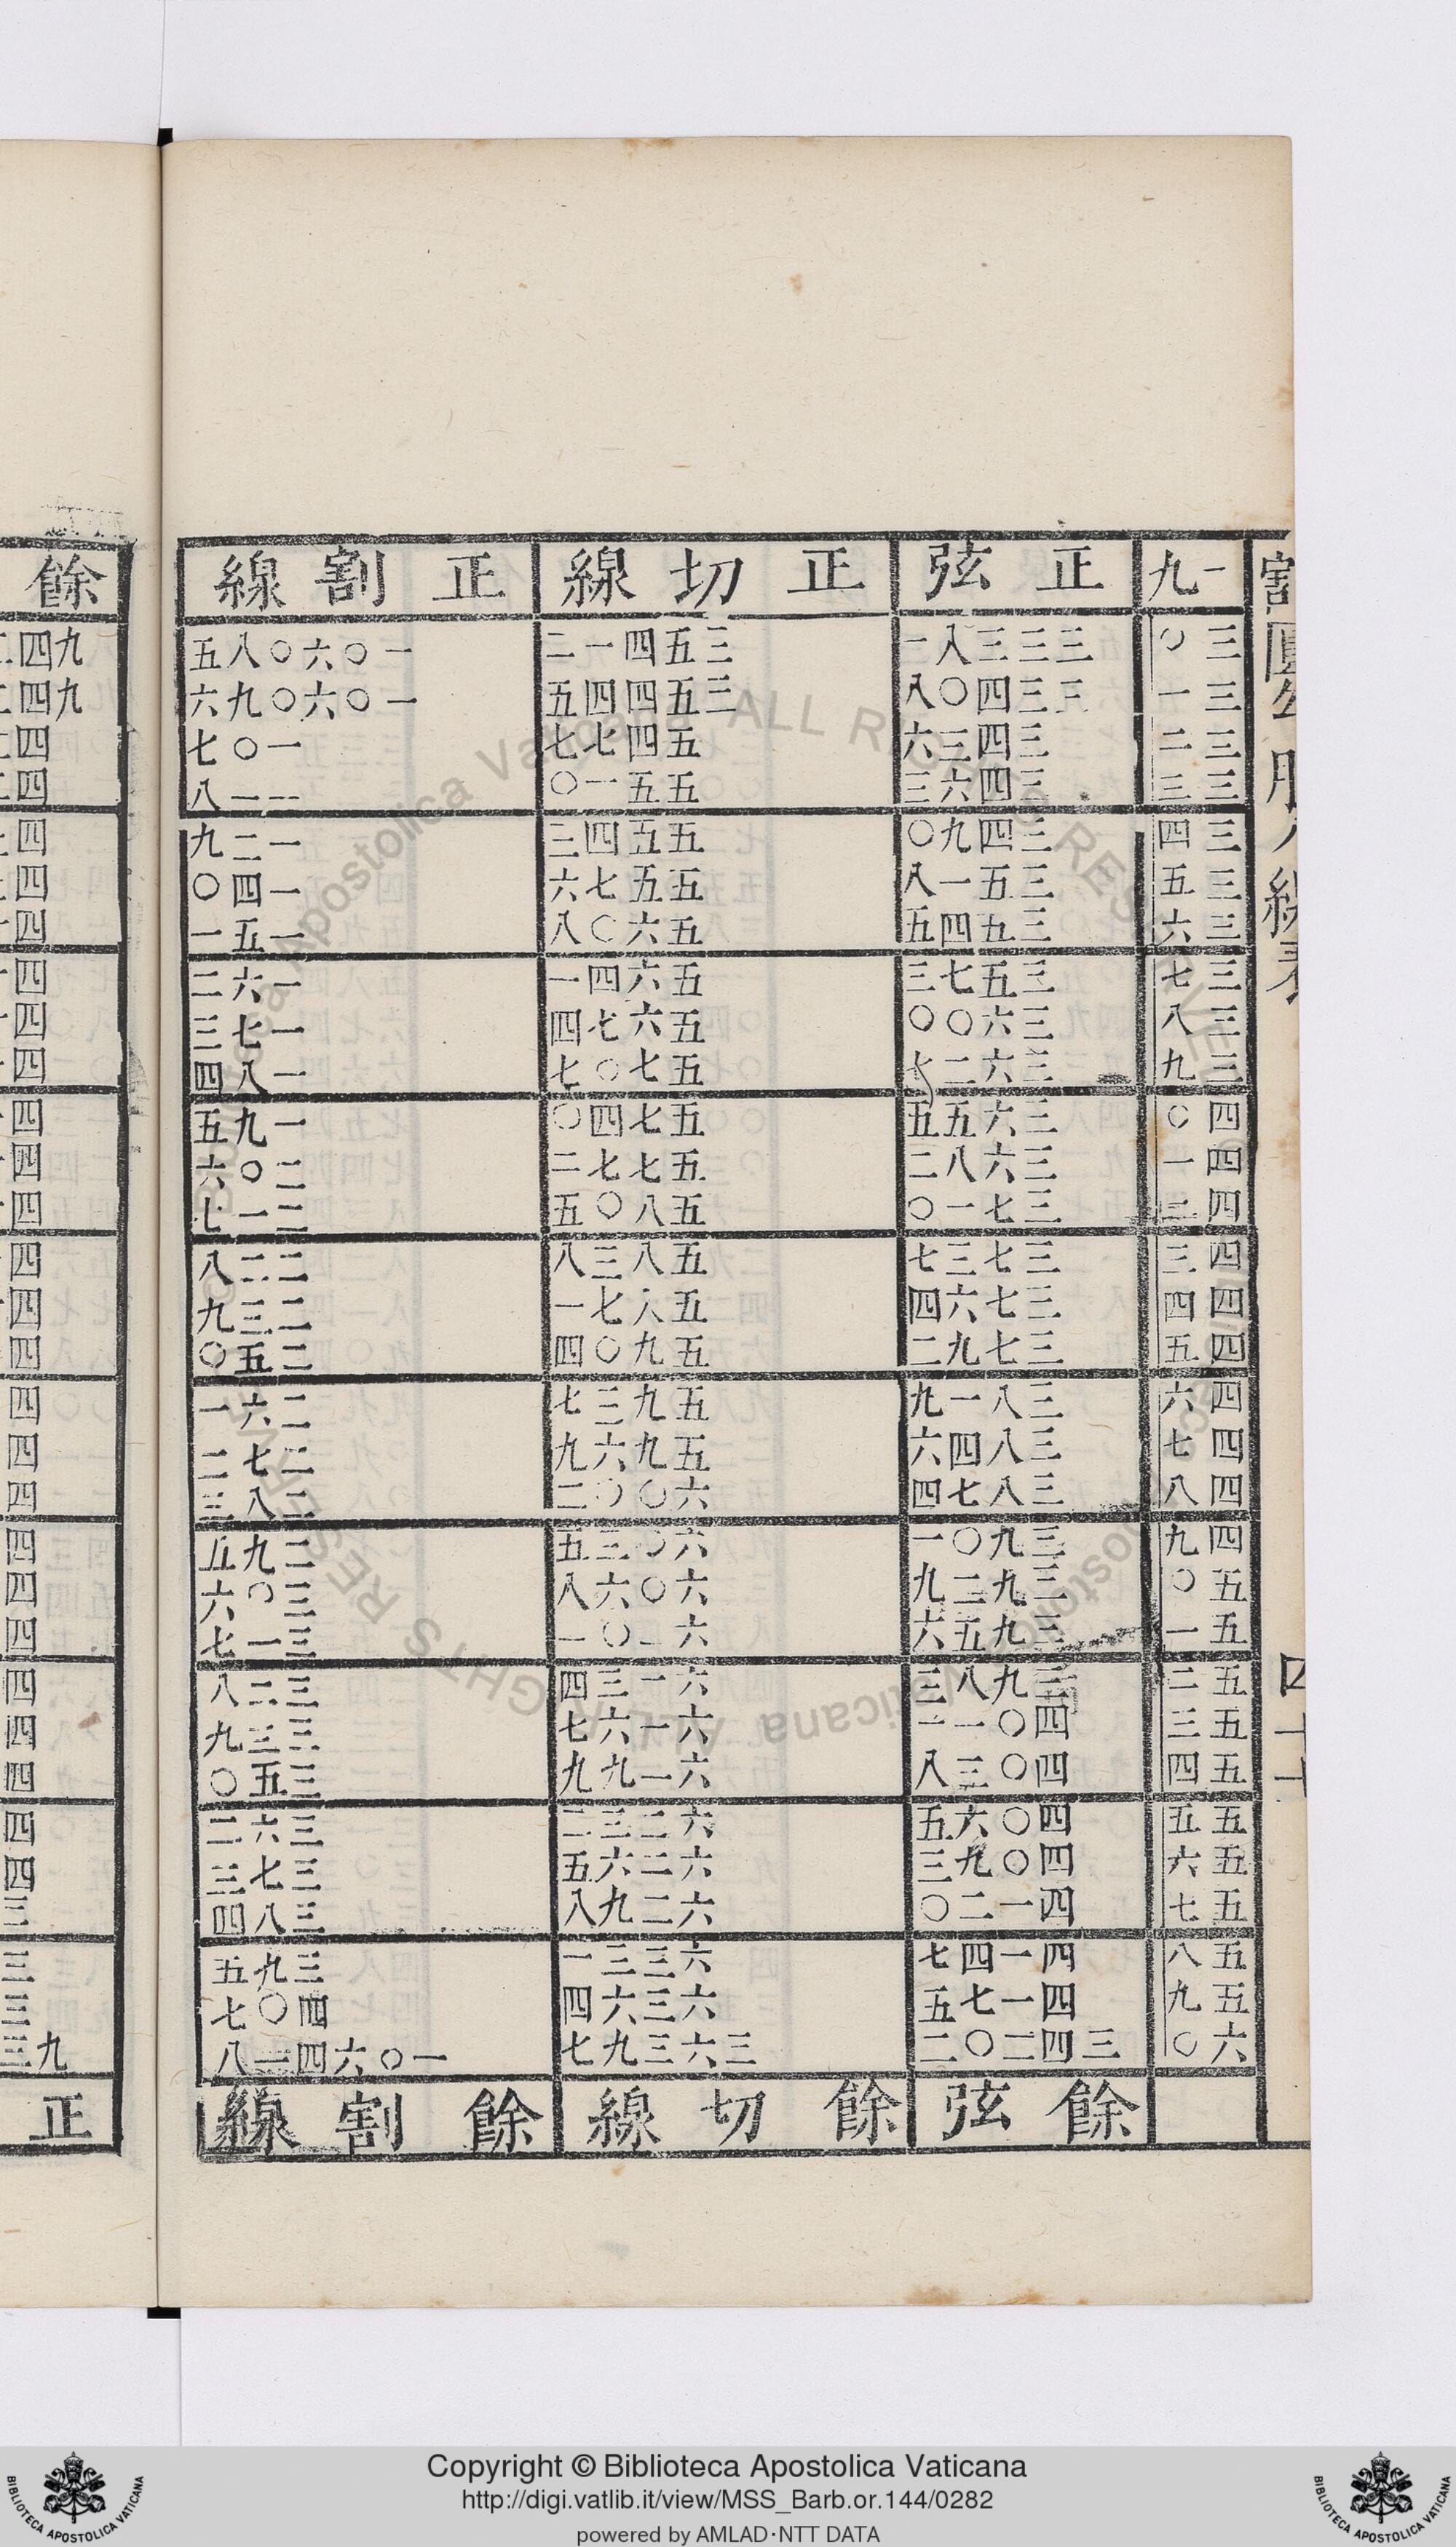 割圓
四十
一九 正弦 正切線 正割線
三〇 三三三八一 三五四一二 一〇六〇八五
三一 三三四〇八 三五四四五 一〇六〇九六
三二 三四三六 五四七七 一〇七
三三 三四六三 五五一〇 一一八
三四 三四九〇 五五四三 一二九
三五 三五一八 五五七六 一四〇
三六 三五四五 五六〇八 一五一
三七 三五七三 五六四一 一六二
三八 三六〇〇 五六七四 一七三
三九 三六二七 五七〇七 一八四
四〇 三六五五 五七四〇 一九五
四一 三六八二 五七七二 二〇六
四二 三七一〇 五八〇五 二一七
四三 三七三七 五八三八 二二八
四四 三七六四 五八七一 二三九
四五 三七九二 五九〇四 二五〇
四六 三八一九 五九三七 二六一
四七 三八四六 五九六九 二七二
四八 三八七四 六〇〇二 二八三
四九 三九〇一 六〇三五 二九五
五〇 三九二九 六〇六八 三〇六
五一 三九五六 六一〇一 三一七
五二 三九八三 六一三四 三二八
五三 四〇一一 六一六七 三三九
五四 四〇三八 六一九九 三五〇
五五 四〇六五 六二三二 三六二
五六 四〇九三 六二六五 三七三
五七 四一二〇 六二九八 三八四
五八 四一四七 六三三一 三九五
五九 四一七五 六三六四 四〇七
六〇 三四二〇二 三六三九七 一〇六四一八
餘弦 餘切線 餘割線
餘
正
Copyright © Biblioteca Apostolica Vaticana
http://digi.vatlib.it/view/MSS_Barb.or.144/0282
powered by AMLAD·NTT DATA
BIBLIOTECA APOSTOLICA VATICANA
BIBLIOTECA APOSTOLICA VATICANA